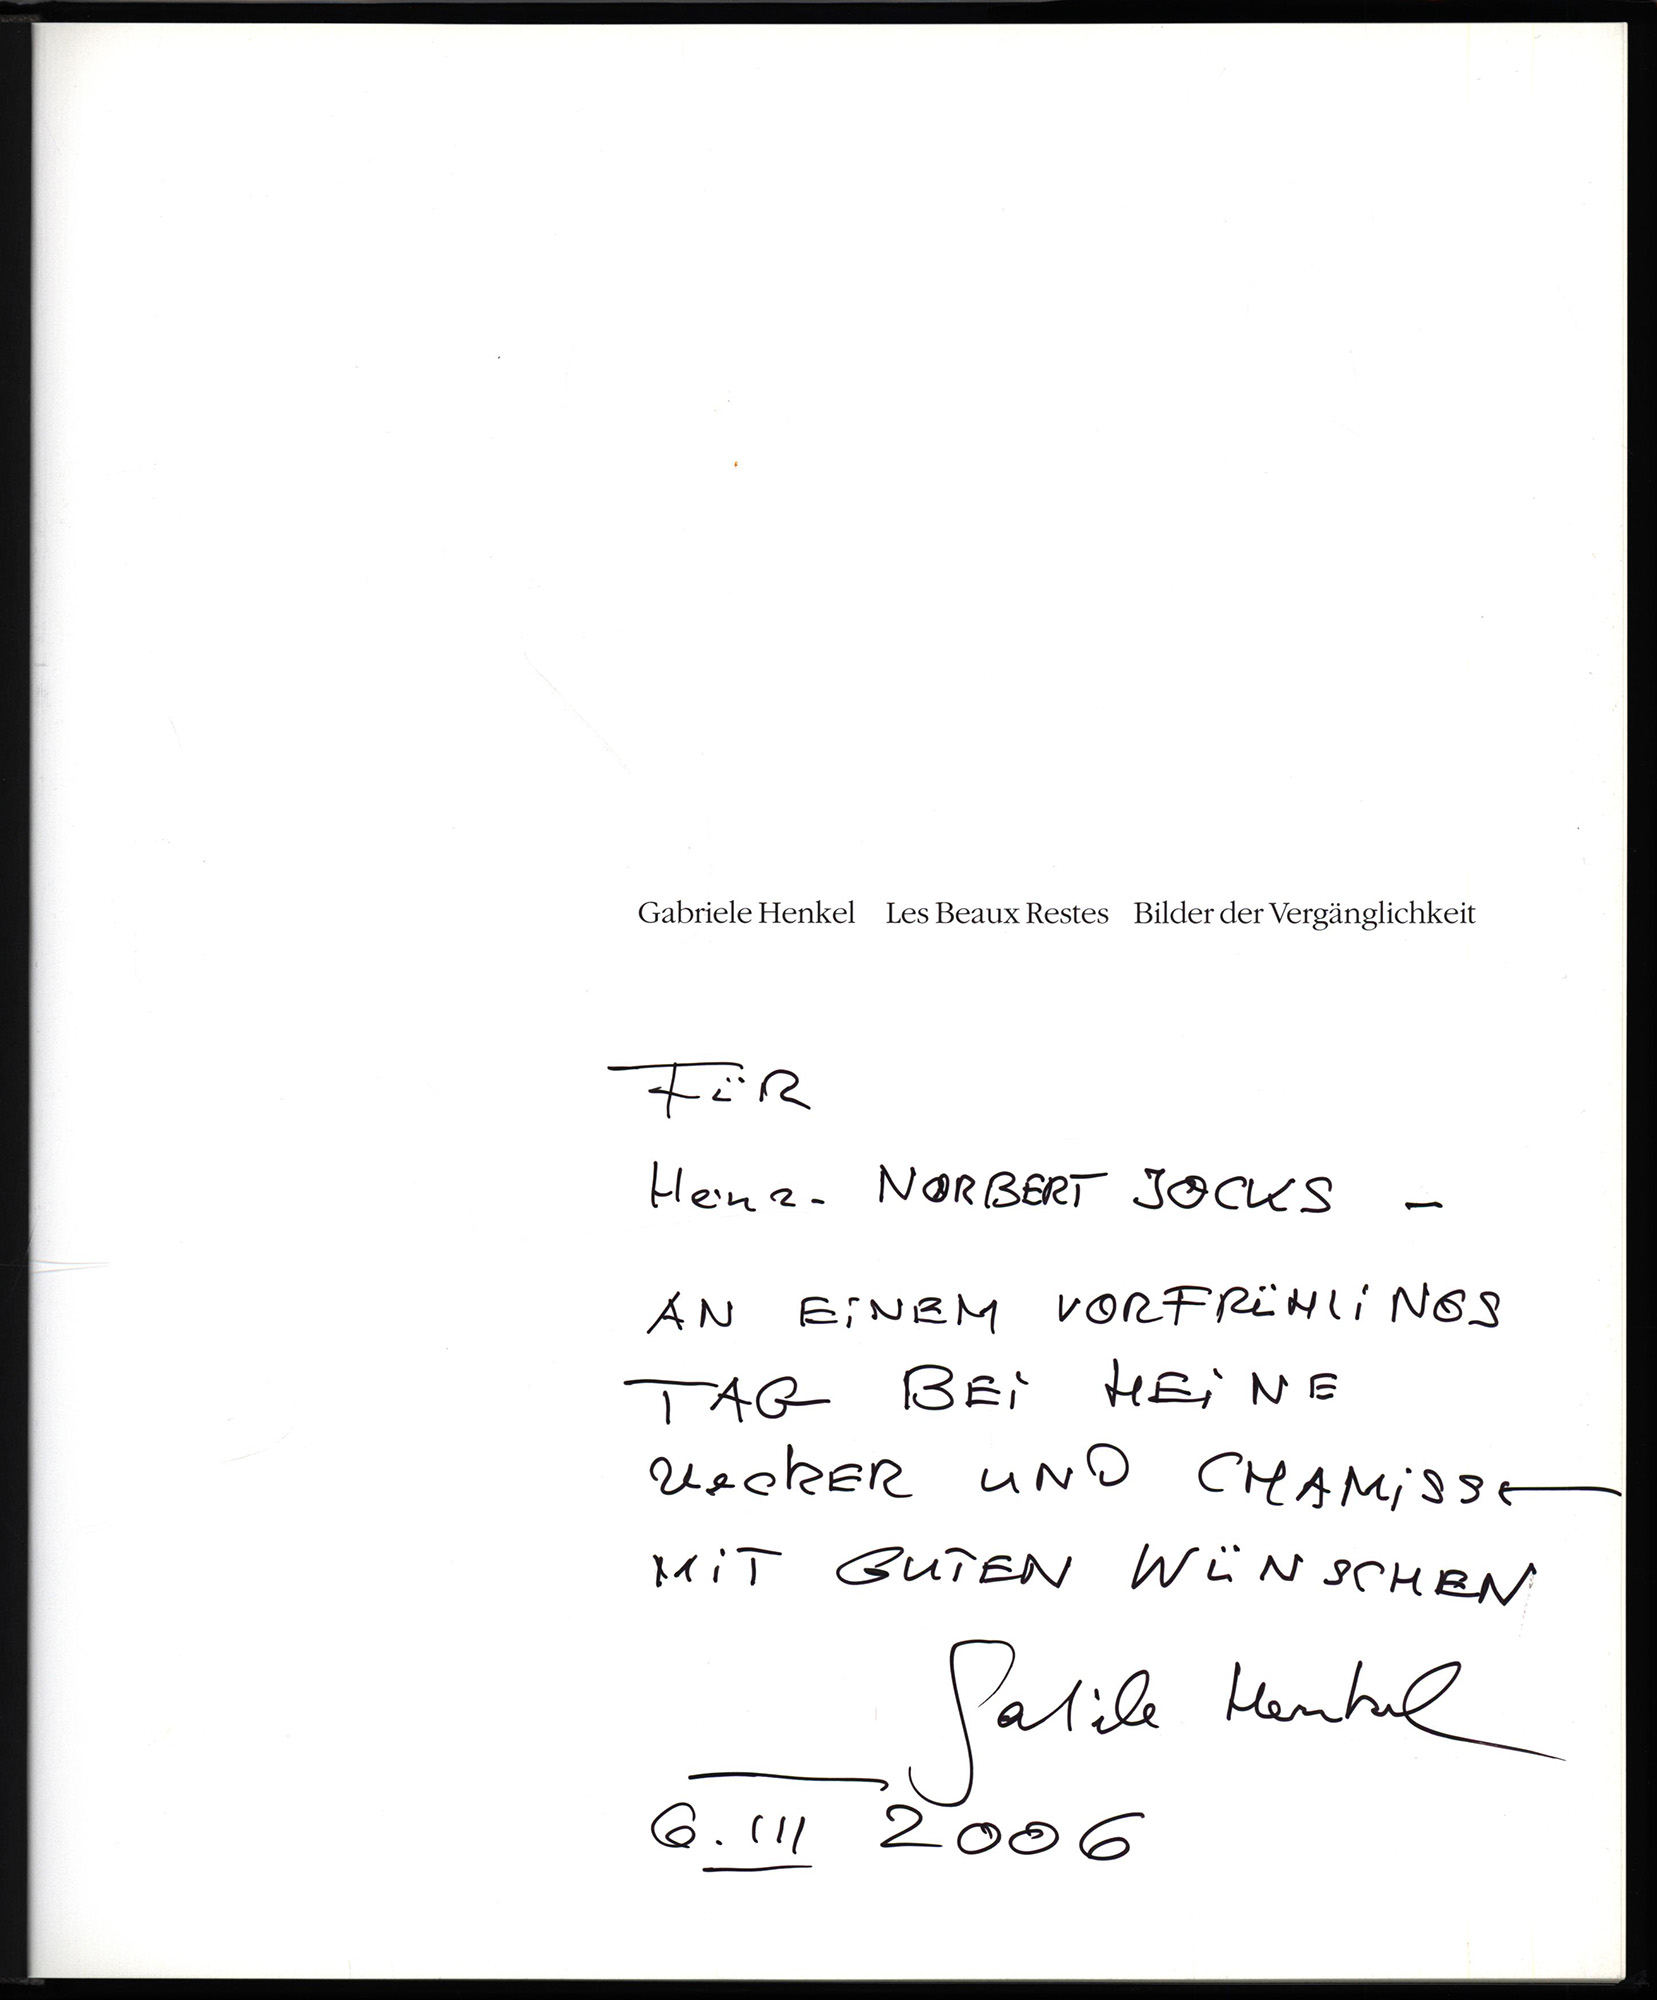 Gabriele Henkel Les Beaux Restes Bilder der Vergänglichkeit
FÜR
Heinz- NORBERT JOCKS –
AN EINEM VORFRÜHLINGS
TAG BEI HEINE
UECKER UND CHAMISSO
MIT GUTEN WÜNSCHEN
Gabriele Henkel
6. III 2006